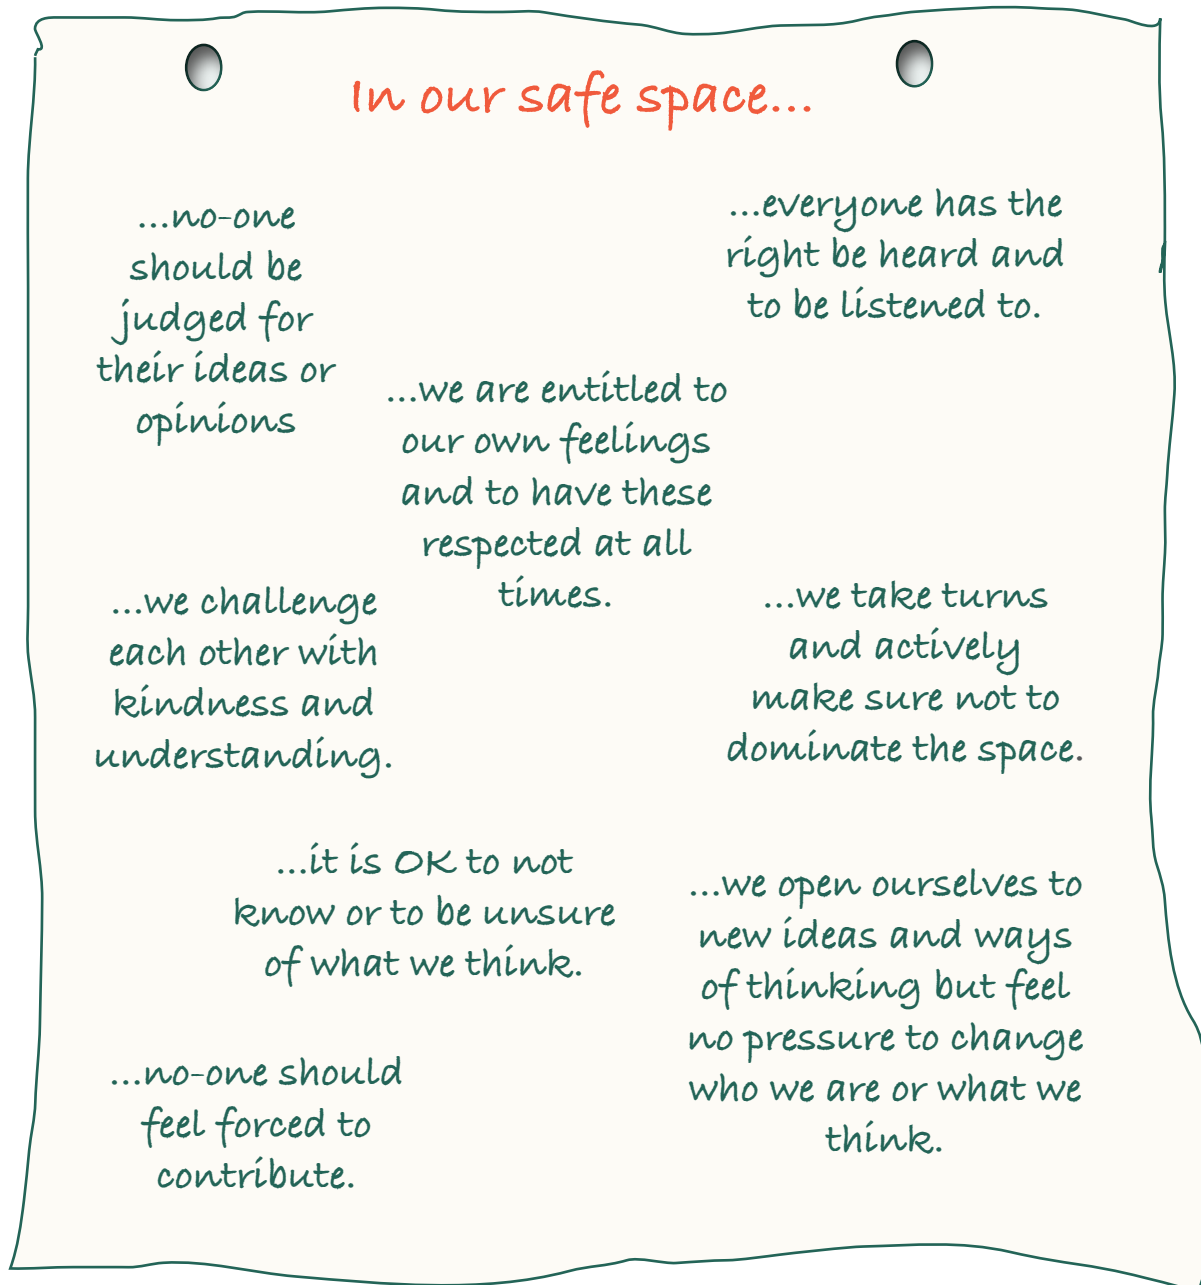 In our safe space...
...no-one
should be
judged for
their ideas or
opinions
...everyone has the
right be heard and
to be listened to.
...we are entitled to
our own feelings
and to have these
respected at all
times.
...we challenge
each other with
kindness and
understanding.
...we take turns
and actively
make sure not to
dominate the space.
...it is OK to not
know or to be unsure
of what we think.
...we open ourselves to
new ideas and ways
of thinking but feel
no pressure to change
who we are or what we
think.
...no-one should
feel forced to
contribute.